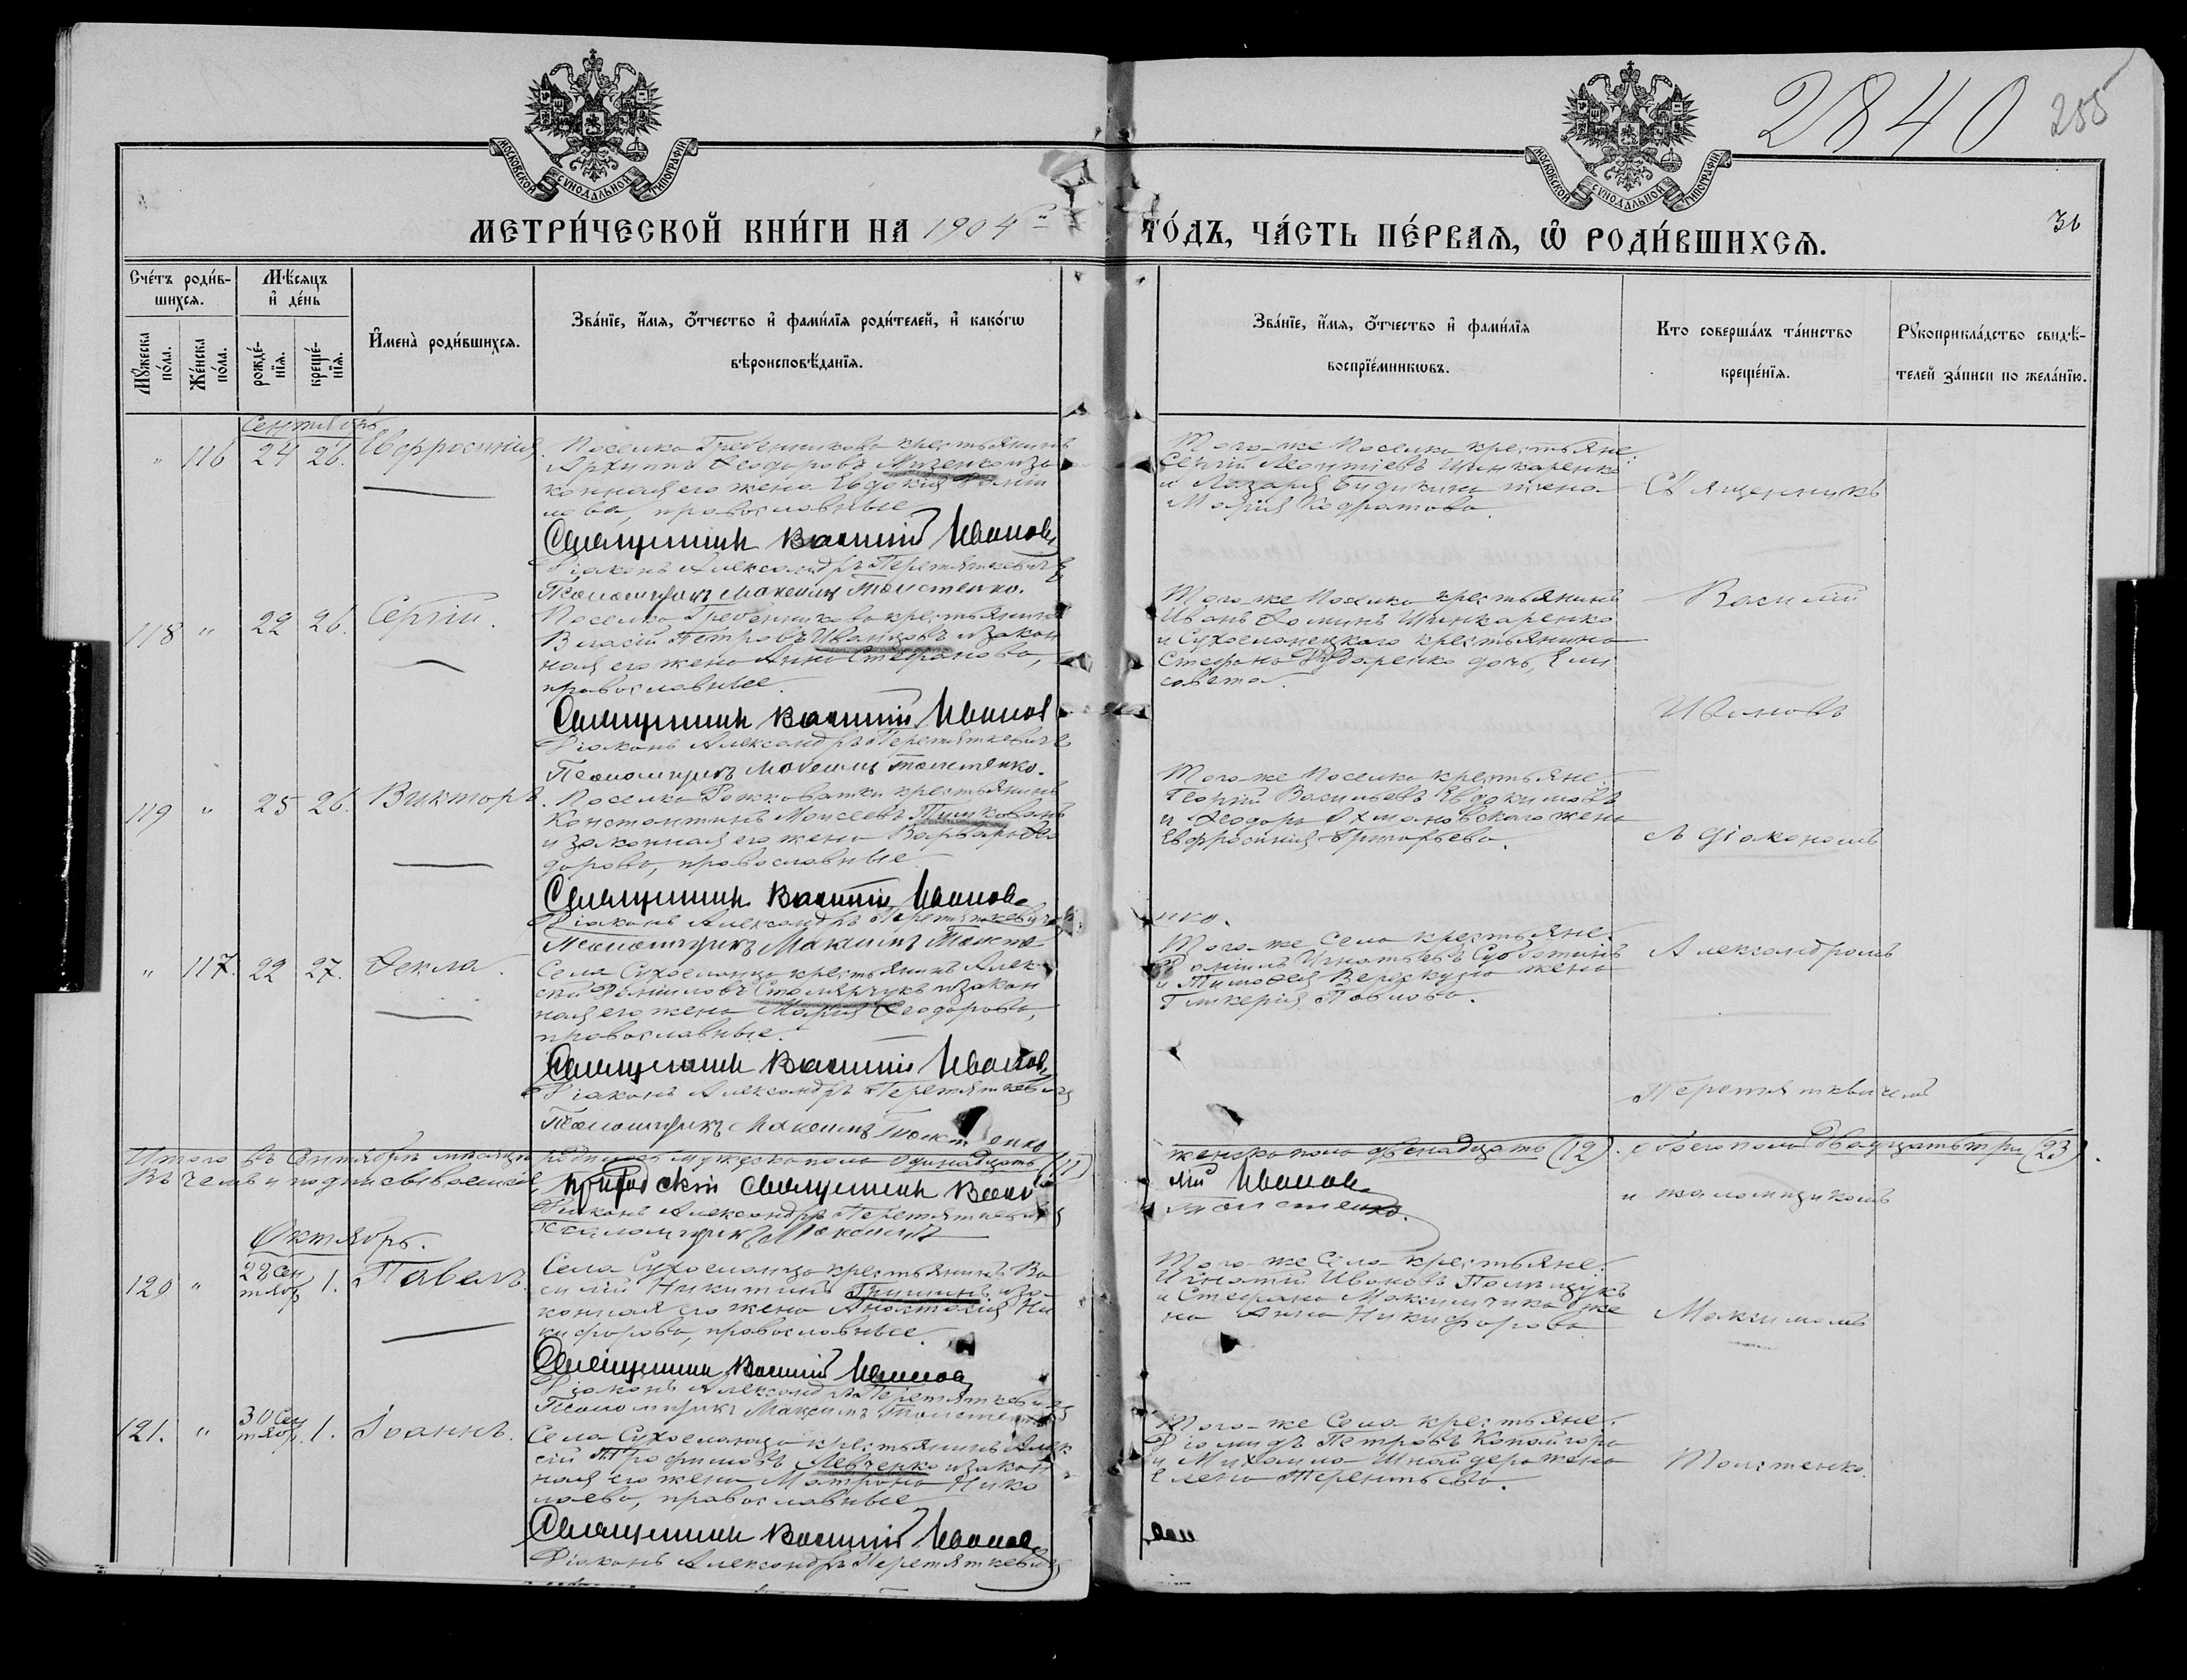 2840 255
МОСКОВСКОЙ СѴНОДАЛЬНОЙ ТИПОГРАФІИ
МОСКОВСКОЙ СѴНОДАЛЬНОЙ ТИПОГРАФІИ
МЕТРИ́ЧЕСКОЙ КНИ́ГИ НА 1904й ГО́ДЪ, ЧА́СТЬ ПЕ́РВАЯ, Ѡ РОДИ́ВШИХСЯ.
31
Сче́тъ роди́в-
шихся.
Мѣ́сяцъ
и҆ де́нь
Мꙋ́жеска по́ла.
Же́нска по́ла.
рожде́-
нїя.
креще́-
нїя.
И҆мена̀ роди́вшихся.
Зва́нїе, и҆́мя, о҆́тчество и҆ фами́лїя роди́телей, и҆ како́гѡ
вѣроисповѣ́данїя.
Зва́нїе, и҆́мя, о҆́тчество и҆ фами́лїя
воспрїе́мникѡвъ.
Кто соверша́лъ та́инство
креще́нїя.
Рꙋкоприкла́дство свидѣ́-
телей за́писи по жела́нїю.
Сентябрь
" 116 24 26. Евфросинія.
Поселка Гребенникова крестьянинъ
Архиппъ Ѳеодоровъ и за
конная его жена Евдокія Даніи
лова, православные
Священникъ Василій Иванов
Діаконъ Александръ Перетяткевичъ
Псаломщикъ Максимъ Толстенко.
Того-же Поселка крестьяне:
Сергій Леонтіевъ Шинкаренко
и Лазаря жена
Марія Кодратова.
Священникъ
118 " 22 26. Сергій.
Поселка Гребенникова крестьянинъ
Власій Петровъ Иванцовъ и закон
ная его жена Анна Стефанова,
православные.
Священникъ Василій Иванов
Діаконъ Александръ Перетяткевичъ
Псаломщикъ Максимъ Толстенко.
Того-же Поселка крестьянинъ
Иванъ Ѳоминъ Шинкаренко
и Сухоеланецкаго крестьянина
Стефана дочь, Ели
савета.
Василій
Ивановъ
119 " 25 26. Викторъ.
Поселка Рожковатки крестьянинъ
Константинъ Моисеевъ
и законная его жена Варвара Ѳео
дорова, православные
Священникъ Василій Иванов
Діаконъ Александръ Перетяткевичъ
Псаломщикъ Максимъ Толсте
нко.
Того-же Поселка крестьяне:
Георгій Васильевъ Евдокимовъ
и Ѳеодора Ахмановскаго жена
Евфросинія Григорьева.
съ діакономъ
" 117. 22 27. Ѳекла.
Села Сухоеланца крестьянинъ Алек
сѣй Даніиловъ Столярчукъ и закон
ная его жена Марія Ѳеодорова,
православные.
Священникъ Василій Иванов
Діаконъ Александръ Перетяткевичъ
Псаломщикъ Максимъ Толстенко
Того-же Села крестьяне:
Даніилъ Игнатьевъ Суботинъ
и Тимоѳея жена
Гликерія Павлова.
Александромъ
Перетяткевичемъ
Итого въ Сентябрѣ мѣсяцѣ родилось мужеска пола одинадцать (11) женска пола двенадцать (12). обоего пола двадцать три (23).
Въ чемъ и подписываемся, Приходскій священникъ Василій Иванов
Діаконъ Александръ Перетяткевичъ
Псаломщикъ Максимъ Толстенко.
и псаломщикомъ
Октябрь.
120 " 28 Сентябр 1. Павелъ
Села Сухоеланца крестьянинъ Ва
силій Никитинъ Гришинъ и за
конная его жена Анастасія Ни
кифорова, православные.
Священникъ Василій Иванов
Діаконъ Александръ Перетяткевичъ
Псаломщикъ Максимъ Толстенко
Того-же Села крестьяне:
Игнатій Ивановъ Полищукъ
и Стефана Максимчика же
на Анна Никифорова
Максимомъ
121. " 30 Сентябр. 1. Іоаннъ.
Села Сухоеланца крестьянинъ Алек
сій Трофимовъ Левченко и закон
ная его жена Матрона Нико
лаева, православные
Священникъ Василій Иванов
Діаконъ Александръ Перетяткевичъ
Того-же Села крестьяне:
Діомидъ Петровъ
и Михаила Шнайдера жена
Елена Терентьева.
Толстенко.